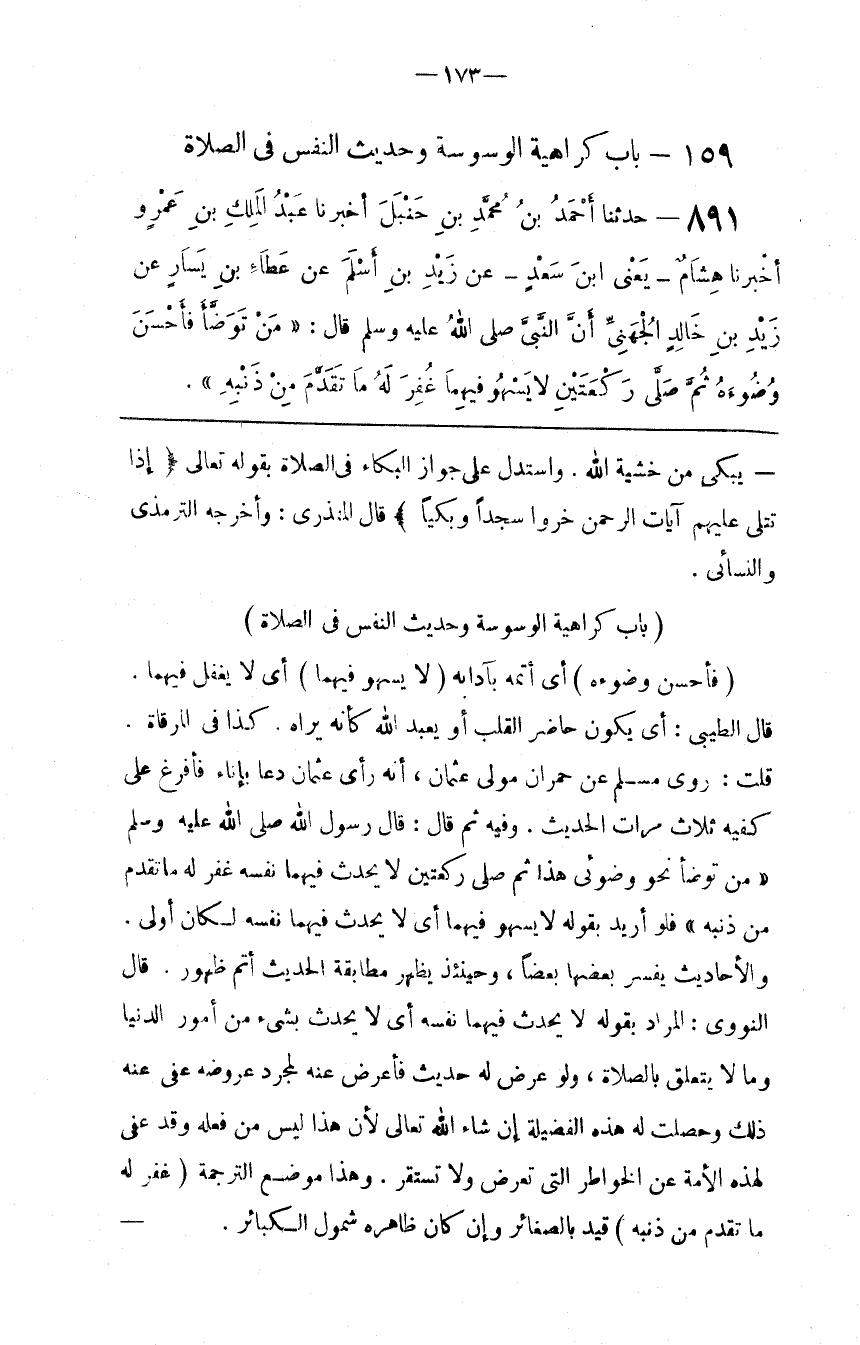 —١٧٣—
١٥٩ – باب كراهية الوسوسة وحديث النفس فى الصلاة
٨٩١ – حدثنا أَحْمَدُ بنُ مُحمَّدِ بنِ حَنْبَلَ أخبرنا عَبْدُ المَلِكِ بن عَمْرٍو
أخْبرنا هِشَامٌ ـ يَعْنى ابنَ سَعْدٍ ـ عن زَيْدِ بنِ أَسْلَمَ عن عَطَاءِ بنِ يَسَارٍ عن
زَيْدِ بنِ خَالِدٍ الْجُهَنِيِّ أَنَّ النَّبيَّ صلى اللهُ عليه وسلم قال : « مَنْ تَوَضَّأَ فأَحْسَنَ
وُضُوءَهُ ثُمَّ صَلَّى رَكْعَتَيْنِ لايَسْهُو فيهِمَا غُفِرَ لَهُ مَا تَقَدَّمَ مِنْ ذَنْبِهِ » .
— يبكى من خشية الله . واستدل على جواز البكاء فى الصلاة بقوله تعالى ﴿ إذا
تتلى عليهم آيات الرحمن خروا سجداً وبكياً ﴾ قال المنذرى : وأخرجه الترمذى
والنسائى .
( باب كراهية الوسوسة وحديث النفس فى الصلاة )
( فأحسن وضوءه ) أى أتمه بآدابه ( لا يسهو فيهما ) أى لا يغفل فيهما .
قال الطيبى : أى يكون حاضر القلب أو يعبد الله كأنه يراه . كذا فى المرقاة .
قلت : روى مسلم عن حمران مولى عثمان ، أنه رأى عثمان دعا بإناء فأفرغ على
كفيه ثلاث مرات الحديث . وفيه ثم قال : قال رسول الله صلى الله عليه وسلم
« من توضأ نحو وضوئى هذا ثم صلى ركعتين لا يحدث فيهما نفسه غفر له ماتقدم
من ذنبه » فلو أريد بقوله لايسهو فيهما أى لا يحدث فيهما نفسه لكان أولى .
والأحاديث يفسر بعضها بعضاً ، وحينئذ يظهر مطابقة الحديث أتم ظهور . قال
النووى : المراد بقوله لا يحدث فيهما نفسه أى لا يحدث بشىء من أمور الدنيا
وما لا يتعلق بالصلاة ، ولو عرض له حديث فأعرض عنه لمجرد عروضه عفى عنه
ذلك وحصلت له هذه الفضيلة إن شاء الله تعالى لأن هذا ليس من فعله وقد عفى
لهذه الأمة عن الخواطر التى تعرض ولا تستقر . وهذا موضع الترجمة ( غفر له
ما تقدم من ذنبه ) قيد بالصغائر وإن كان ظاهره شمول الكبائر . —